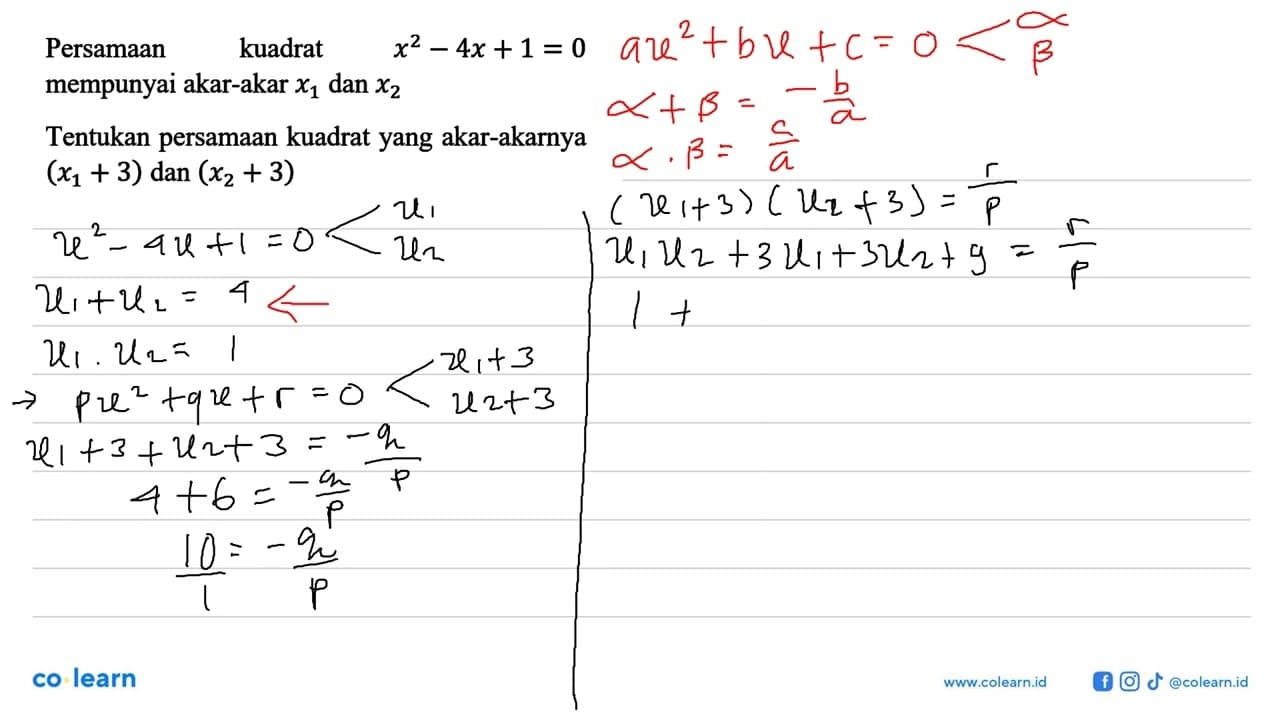 Persamaan kuadrat x² − 4x + 1 = 0
mempunyai akar-akar x₁ dan x₂
Tentukan persamaan kuadrat yang akar-akarnya
(x₁ + 3) dan (x₂ + 3)
x² − 4x + 1 = 0 < x₁
x₂
x₁ + x₂ = 4 ←
x₁ . x₂ = 1
→ px² + qx + r = 0 < x₁ + 3
x₂ + 3
x₁ + 3 + x₂ + 3 = −q/p
4 + 6 = −q/p
10/1 = −q/p
ax² + bx + c = 0 < α
β
α + β = −b/a
α . β = c/a
(x₁ + 3)(x₂ + 3) = r/p
x₁x₂ + 3x₁ + 3x₂ + 9 = r/p
1 +
co learn
www.colearn.id
@colearn.id